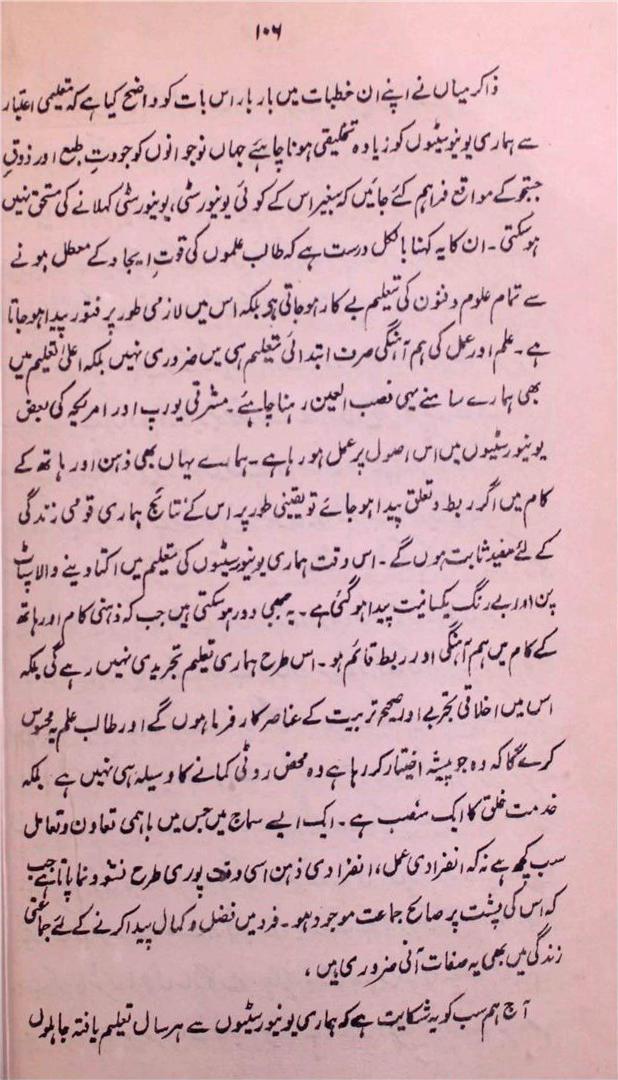 ۱۰۶
ذاکر میاں نے اپنے ان خطبات میں بار بار اس بات کو واضح کیا ہے کہ تعلیمی اعتبار
سے ہماری یونیورسٹیوں کو زیادہ تخلیقی ہونا چاہئے جہاں نوجوانوں کو جودتِ طبع اور ذوقِ
جستجو کے مواقع فراہم کئے جائیں کہ بغیر اس کے کوئی یونیورسٹی، یونیورسٹی کہلانے کی مستحق نہیں
ہوسکتی۔ ان کا یہ کہنا بالکل درست ہے کہ طالب علموں کی قوتِ ایجاد کے معطل ہونے
سے تمام علوم و فنون کی تعلیم بے کار ہو جاتی ہے بلکہ اس میں لازمی طور پر فتور پیدا ہو جاتا
ہے۔ علم اور عمل کی ہم آہنگی صرف ابتدائی تعلیم ہی میں ضروری نہیں بلکہ اعلیٰ تعلیم میں
بھی ہمارے سامنے یہی نصب العین رہنا چاہئے۔ مشرقی یورپ اور امریکہ کی بعض
یونیورسٹیوں میں اس اصول پر عمل ہو رہا ہے۔ ہمارے یہاں بھی ذہن اور ہاتھ کے
کام میں اگر ربط و تعلق پیدا ہو جائے تو یقینی طور پر اس کے نتائج ہماری قومی زندگی
کے لئے مفید ثابت ہوں گے۔ اس وقت ہماری یونیورسٹیوں کی تعلیم میں اکتا دینے والا سپاٹ
پن اور بے رنگ یکسانیت پیدا ہوگئی ہے۔ یہ جبھی دور ہوسکتی ہیں جب کہ ذہنی کام اور ہاتھ
کے کام میں ہم آہنگی اور ربط قائم ہو۔ اس طرح ہماری تعلیم تجریدی نہیں رہے گی بلکہ
اس میں اخلاقی تجربے اور صحیح تربیت کے عناصر کارفرما ہوں گے اور طالب علم یہ محسوس
کرے گا کہ وہ جو پیشہ اختیار کر رہا ہے وہ محض روٹی کمانے کا وسیلہ ہی نہیں ہے بلکہ
خدمت خلق کا ایک منصب ہے۔ ایک ایسے سماج میں جس میں باہمی تعاون و تعامل
سب کچھ ہے نہ کہ انفرادی عمل، انفرادی ذہن اسی وقت پوری طرح نشوونما پاتا ہے جب
کہ اس کی پشت پر صالح جماعت موجود ہو۔ فرد میں فضل و کمال پیدا کرنے کے لئے جماعتی
زندگی میں بھی یہ صفات آنی ضروری ہیں،
آج ہم سب کو یہ شکایت ہے کہ ہماری یونیورسٹیوں سے ہر سال تعلیم یافتہ جاہلوں